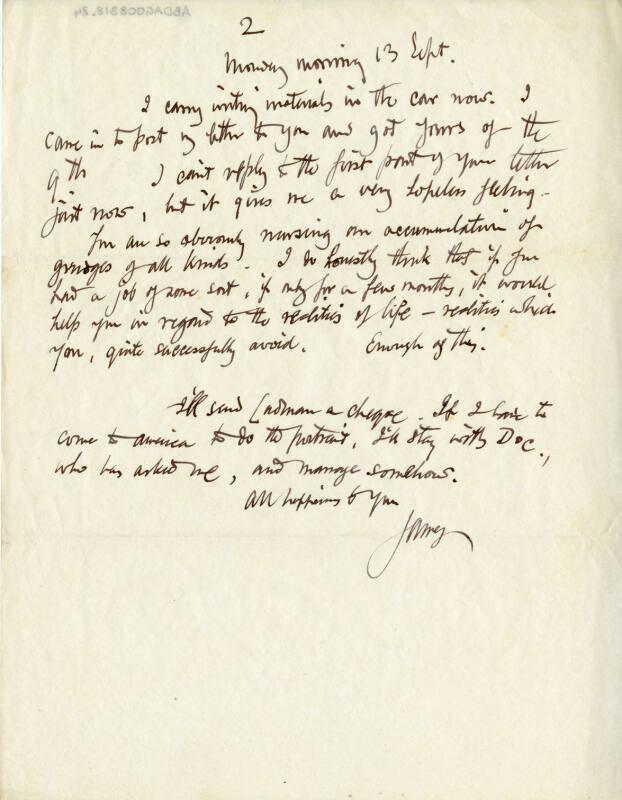 ABDAG008818.24
2
Monday morning 13 Sept.
I carry writing materials in the car now. I
came in to post my letter to you and got yours of the
9th I can't reply to the first point of your letter
just now, but it gives me a very hopeless feeling.
You are so obviously nursing an accumulation of
grudges of all kinds. I do honestly think that if you
had a job of some sort, if only for a few months, it would
help you in regard to the realities of life – realities which
you, quite successfully avoid. Enough of this.
I'll send Cadman a cheque. If I have to
come to America to do the portrait, I'll stay with Doc.,
who has asked me, and manage somehow.
All happiness to you
James